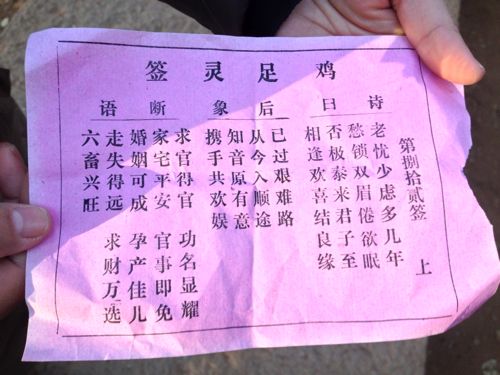 鸡足灵签
第捌拾贰签 上
诗曰
老忧少虑多几年
愁锁双眉倦欲眠
否极泰来君子至
相逢欢喜结良缘
后象
已过艰难路
从今入顺途
知音原有意
携手共欢娱
断语
求官得官 功名显耀
家宅平安 官事即免
婚姻可成 孕产佳儿
走失得远 求财万选
六畜兴旺